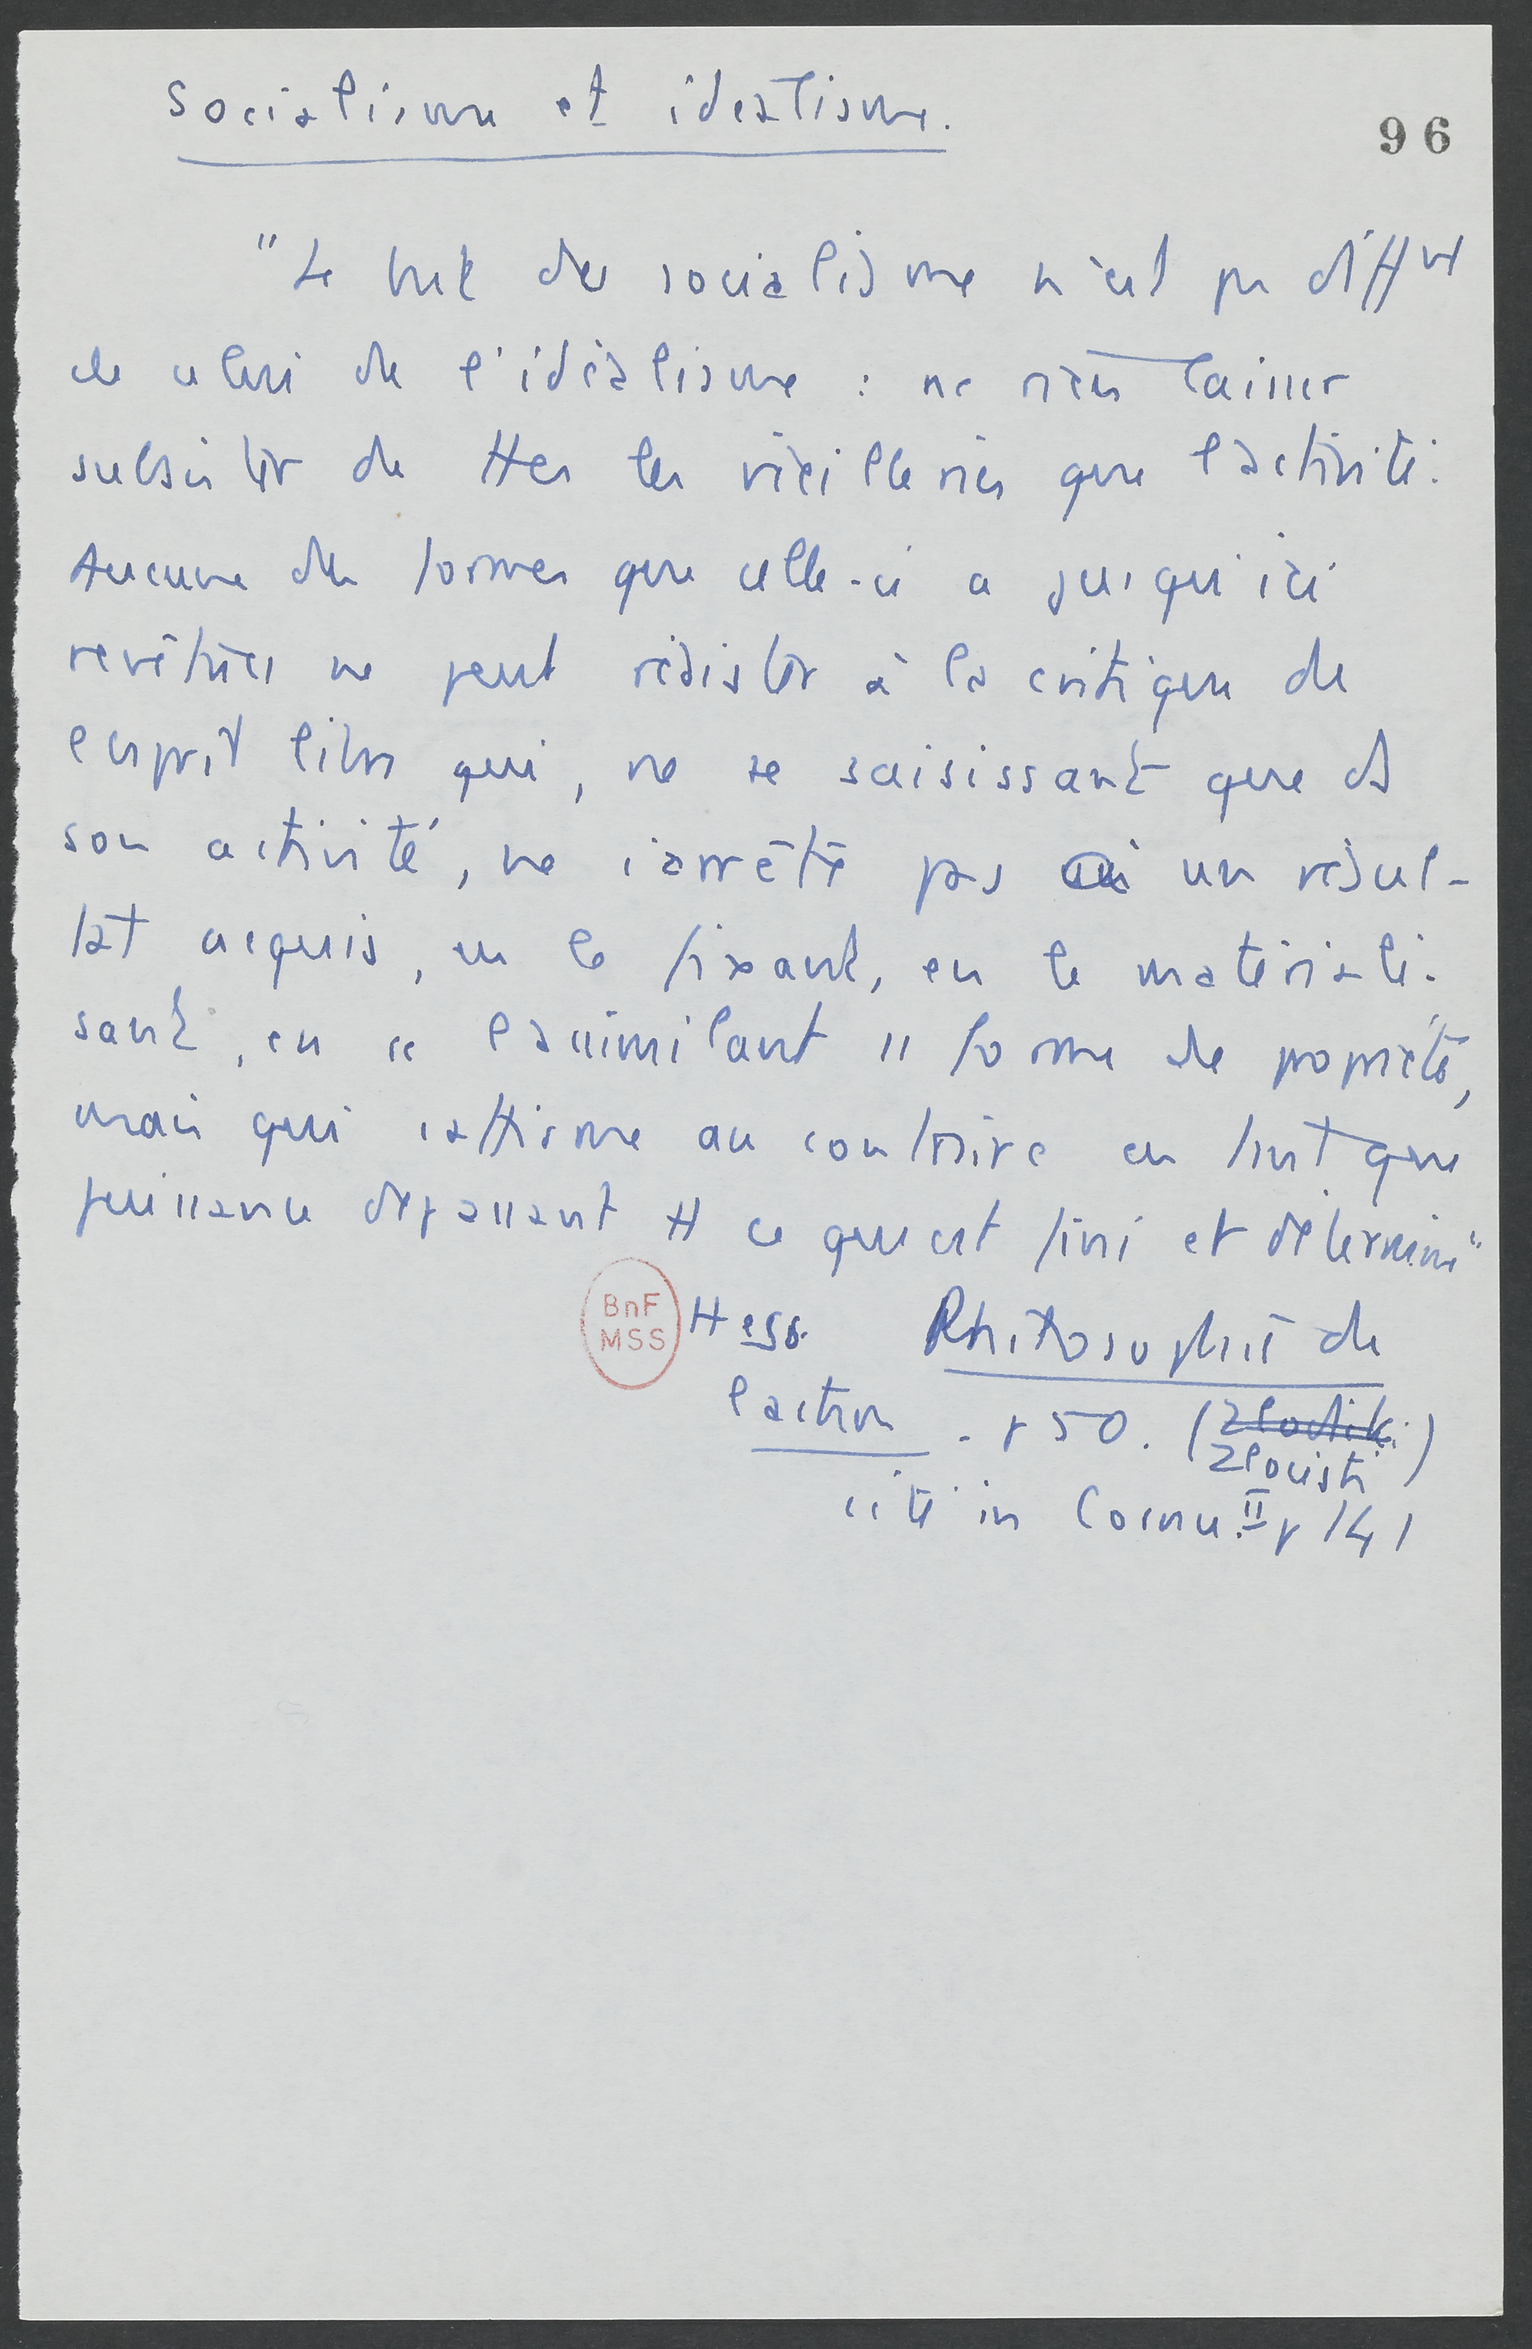 Socialisme et idealisme.
96
"Le but du socialisme n'est pas diff^nt
de celui de l'idéalisme : ne rien laisser
subsister de ttes les vieilleries que l'activité.
Aucune des formes que celle-ci a jusqu'ici
revêtues ne peut résister à la critique de
l'esprit libre qui, ne se saisissant que ds
son activité, ne s'arrête pas à un résul-
tat acquis, en le fixant, en le matériali-
sant, en " l'assimilant " forme de propriété,
mais qui s'affirme au contraire en tant que
puissance dépassant tt ce qui est fini et déterminé"
BnF
MSS
Hess. Philosophie de
l'action. p 50. (Zlocisti)
cité in Cornu. II p 141